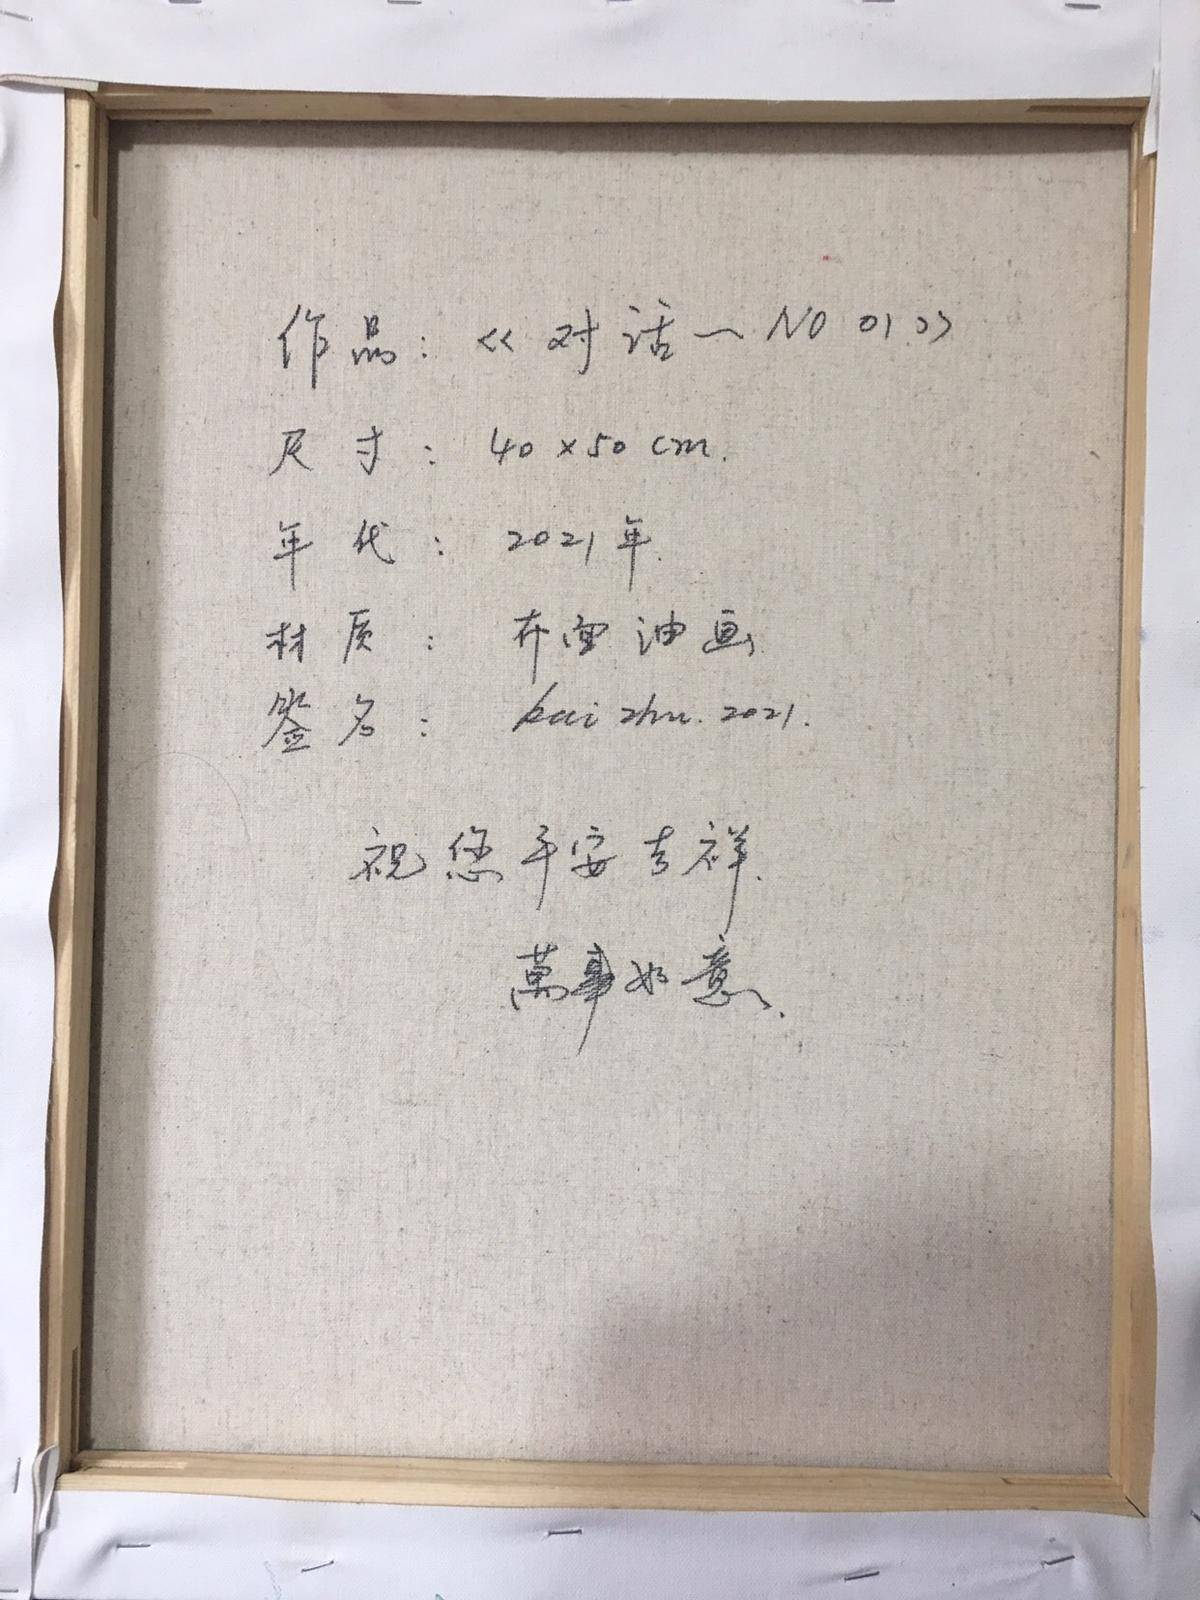 作品：《对话—NO 01.》
尺寸：40×50cm.
年代：2021年.
材质：布面油画
签名：kai zhu. 2021.
祝您平安吉祥.
萬事如意.